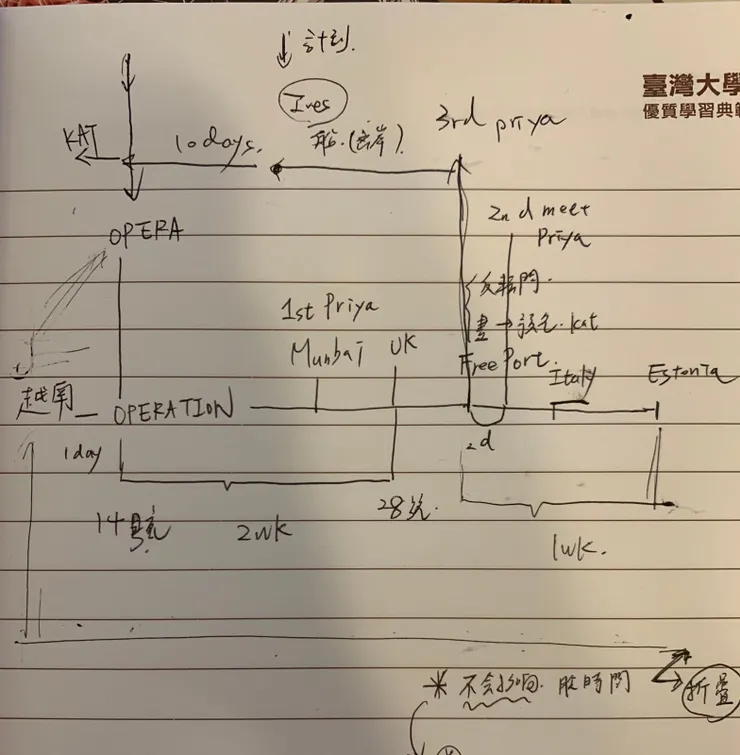 計劃.
Ives
臺灣大學
優質學習典範
KAT
10 days.
船.(靠岸).
3rd priya
OPERA
2nd meet
Priya
1st Priya
Munbai
UK
反轉門.
畫→ kat
Free Port.
Italy
Estonia
OPERATION
1 day
2d
14號
2wk
28號.
1wk.
* 不会影响. 時間
折疊